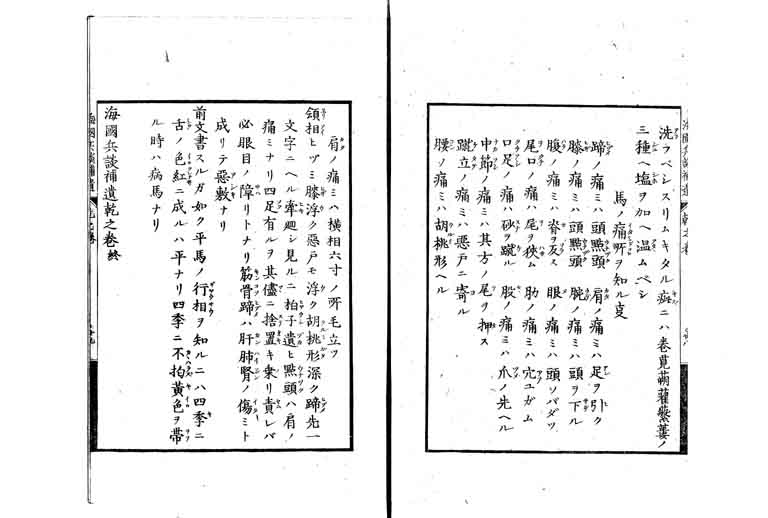 洗フベシスリムキタル癖ニハ巻莧蒴藋紫蔞ノ
三種ヘ塩ヲ加ヘ温ムベシ
馬ノ痛所ヲ知ル㕝
蹄ノ痛ミハ頭㸃頭 肩ノ痛ミハ足ヲ引ク
膝ノ痛ミハ頭㸃頭 腕ノ痛ミハ頭ヲ下ル
腹ノ痛ミハ脊ヲ反ス 眼ノ痛ミハ頭ソバダツ
尾口ノ痛ハ尾ヲ狹ム 肋ノ痛ミハ穴ユガム
口足ノ痛ハ砂ヲ蹴ル 股ノ痛ミハ爪ノ先ヘル
中節ノ痛ミハ其方ノ尾リ押ス
蹴立ノ痛ミハ惡戸ニ寄ル
腰ノ痛ミハ胡桃形ヘル
海國兵談補遺 乾之巻
肩ノ痛ミハ横相六寸ノ所毛立フ
領相ヒヅミ膝浮ク惡戸モ浮ク胡桃形深ク蹄先一
文字ニヘル牽廻シ見ルニ拍子遺ヒ㸃頭ハ肩ノ
痛ミナリ四足有ルヲ其儘ニ捨置キ乗リ責レバ
必眼目ノ障リトナリ筋骨蹄ハ肝肺腎ノ傷ミト
成リテ惡敷ナリ
前文書スルガ如ク平馬ノ行相ヲ知ルニハ四季ニ
古ノ色紅ニ成ルハ平ナリ四季ニ不拘黃色ヲ帶
ル時ハ病馬ナリ
海國兵談補遺乾之巻終
海國兵談補遺